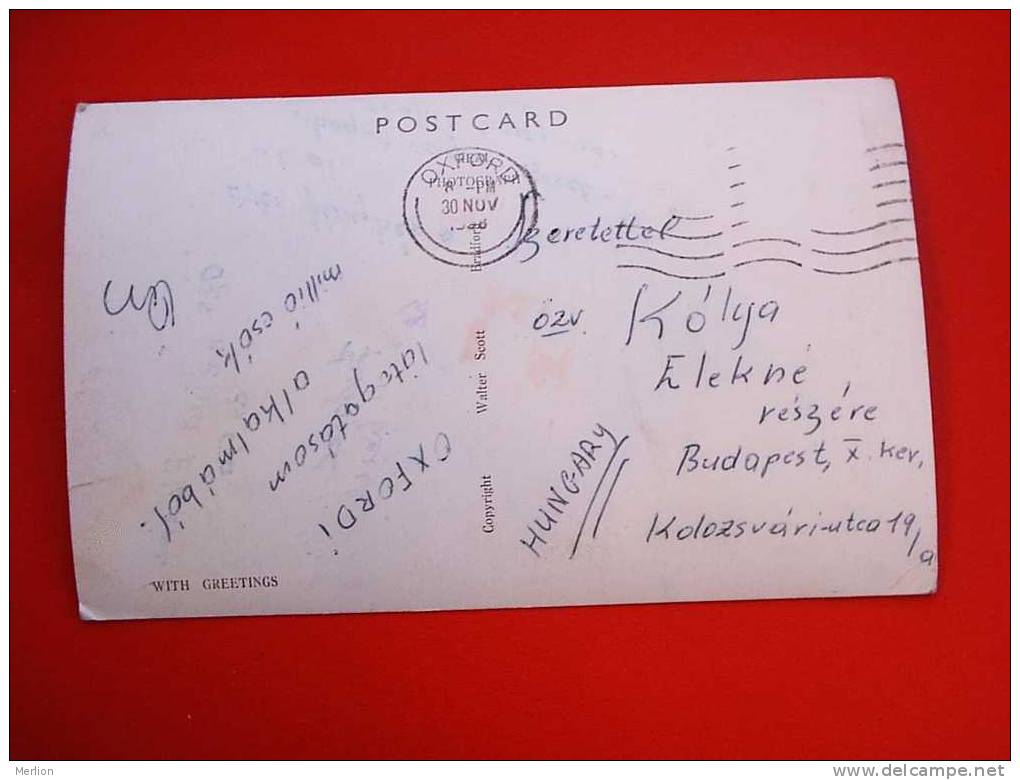 POSTCARD
REAL
PHOTOGRAPH
OXFORD
-PM
30 NOV
Copyright Walter Scott Bradford
OXFORDi
látogatásom
alkalmából
millió csók
WITH GREETINGS
Szeretettel
özv. Kólya
Elekné,
részére
Budapest, X. ker,
Kolozsvári-utca 19/a
HUNGARY
Merlion
delcampe.net